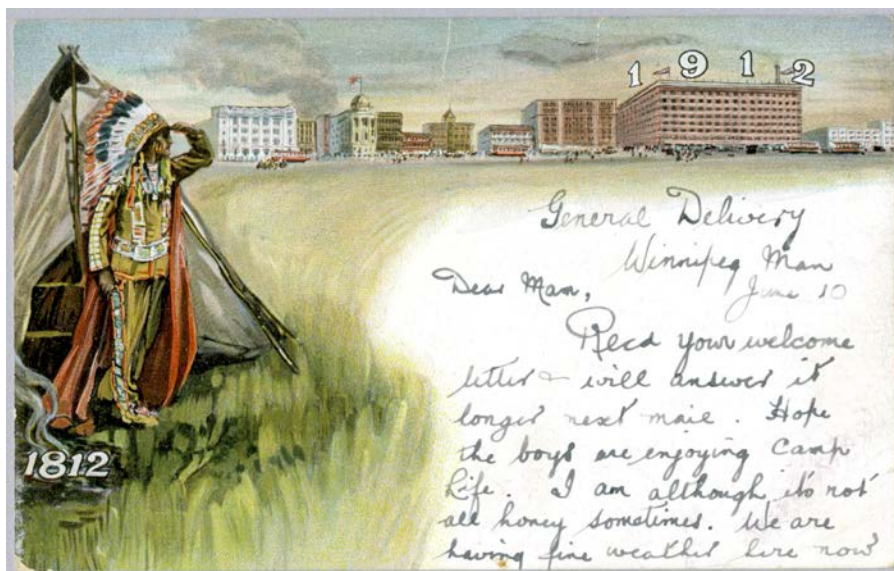 1912
General Delivery
Winnipeg Man
June 10
Dear Mam,
Recd your welcome
letter & will answer it
longer next mail. Hope
the boys are enjoying camp
life. I am although it's not
all honey sometimes. We are
having fine weather here now
1812